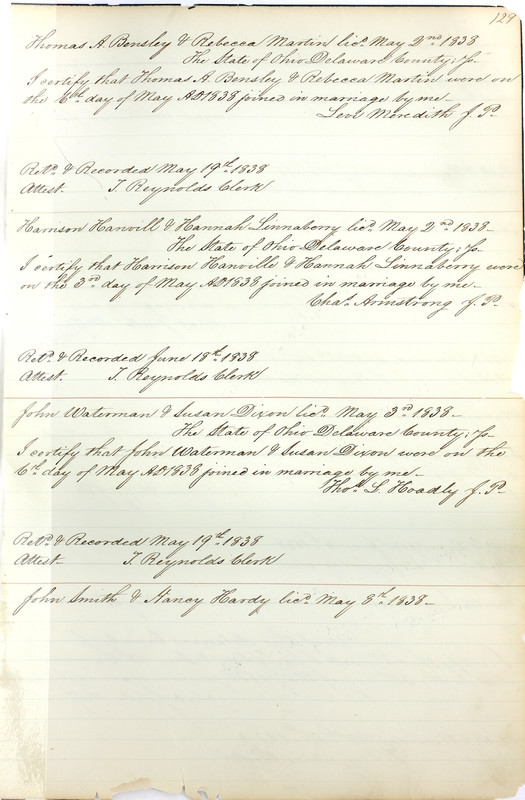 129
Thomas A. Bensley & Rebecca Martin licd. May 2nd 1838
The State of Ohio Delaware County; Ss.
I certify that Thomas A. Bensley & Rebecca Martin were on
the 6th day of May AD 1838 joined in marriage by me
Levi Meredith J. P.
Retd. & Recorded May 19th 1838
Attest. T. Reynolds Clerk
Harrison Hanvill & Hannah Linnaberry licd. May 2nd 1838
The State of Ohio Delaware County; Ss.
I certify that Harrison Hanville & Hannah Linnaberry were
on the 3rd day of May AD 1838 joined in marriage by me
Chas. Armstrong J. P.
Retd. & Recorded June 18th 1838
Attest. T. Reynolds Clerk
John Waterman & Susan Dixon licd. May 3rd 1838
The State of Ohio Delaware County; Ss.
I certify that John Waterman & Susan Dixon were on the
6th day of May AD 1838 joined in marriage by me
Thos. L. Hoadly J. P.
Retd. & Recorded May 19th 1838
Attest T. Reynolds Clerk
John Smith & Nancy Hardy licd. May 8th 1838